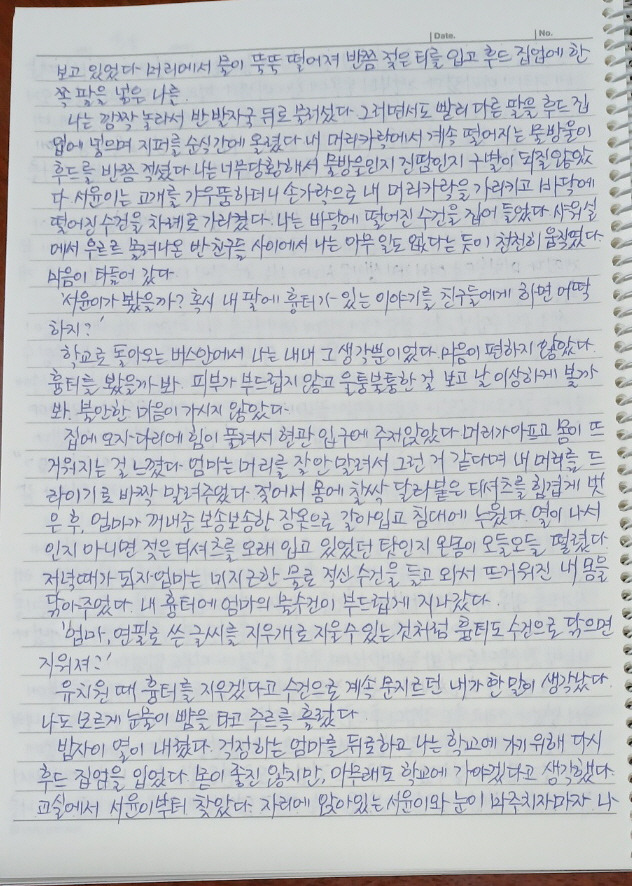 Date.
No.
보고 있었다. 머리에서 물이 뚝뚝 떨어져 반쯤 젖은 티를 입고 후드 집업에 한
쪽 팔을 넣은 나를.
나는 깜짝 놀라서 반 발자국 뒤로 물러섰다. 그러면서도 빨리 다른 팔을 후드 집
업에 넣으며 지퍼를 순식간에 올렸다. 내 머리카락에서 계속 떨어지는 물방울이
후드를 반쯤 적셨다. 나는 너무 당황해서 물방울인지 진땀인지 구별이 되질 않았
다. 서윤이는 고개를 가우뚱하더니 손가락으로 내 머리카락을 가리키고 바닥에
떨어진 수건을 차례로 가리켰다. 나는 바닥에 떨어진 수건을 집어 들었다. 샤워실
에서 우르르 몰려나온 반 친구들 사이에서 나는 아무 일도 없다는 듯이 천천히 움직였다.
마음이 타들어 갔다.
'서윤이가 봤을까? 혹시 내 팔에 흉터가 있는 이야기를 친구들에게 하면 어떡
하지?'
학교로 돌아오는 버스 안에서 나는 내내 그 생각뿐이었다. 마음이 편하지 않았다.
흉터를 봤을까 봐. 피부가 부드럽지 않고 울퉁불퉁한 걸 보고 날 이상하게 볼까
봐 불안한 마음이 가시지 않았다.
집에 오자 다리에 힘이 풀려서 현관 입구에 주저앉았다. 머리가 아프고 몸이 뜨
거워지는 걸 느꼈다. 엄마는 머리를 잘 안 말려서 그런 거 같다며 내 머리를 드
라이기로 바짝 말려주었다. 젖어서 몸에 찰싹 달라붙은 티셔츠를 힘겹게 벗
은 후, 엄마가 꺼내준 보송보송한 잠옷으로 갈아입고 침대에 누웠다. 열이 나서
인지 아니면 젖은 티셔츠를 오래 입고 있었던 탓인지 온몸이 오들오들 떨렸다.
저녁때가 되자 엄마는 미지근한 물로 적신 수건을 들고 와서 뜨거워진 내 몸을
닦아주었다. 내 흉터에 엄마의 물수건이 부드럽게 지나갔다.
'엄마, 연필로 쓴 글씨를 지우개로 지울 수 있는 것처럼 흉터도 수건으로 닦으면
지워져?'
유치원 때 흉터를 지우겠다고 수건으로 계속 문지르던 내가 한 말이 생각났다.
나도 모르게 눈물이 뺨을 타고 주르륵 흘렀다.
밤사이 열이 내렸다. 걱정하는 엄마를 뒤로하고 나는 학교에 가기 위해 다시
후드 집업을 입었다. 몸이 좋진 않지만, 아무래도 학교에 가야겠다고 생각했다.
교실에서 서윤이부터 찾았다. 자리에 앉아있는 서윤이와 눈이 마주치자마자 나